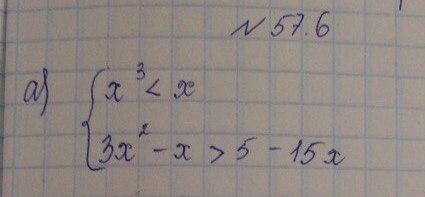 №57.6
а) { x³ < x
3x² - x > 5 - 15x